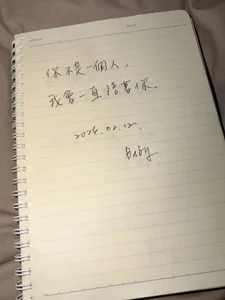 你不是一個人,
我會一直陪著你.
2025.02.12.
Baby